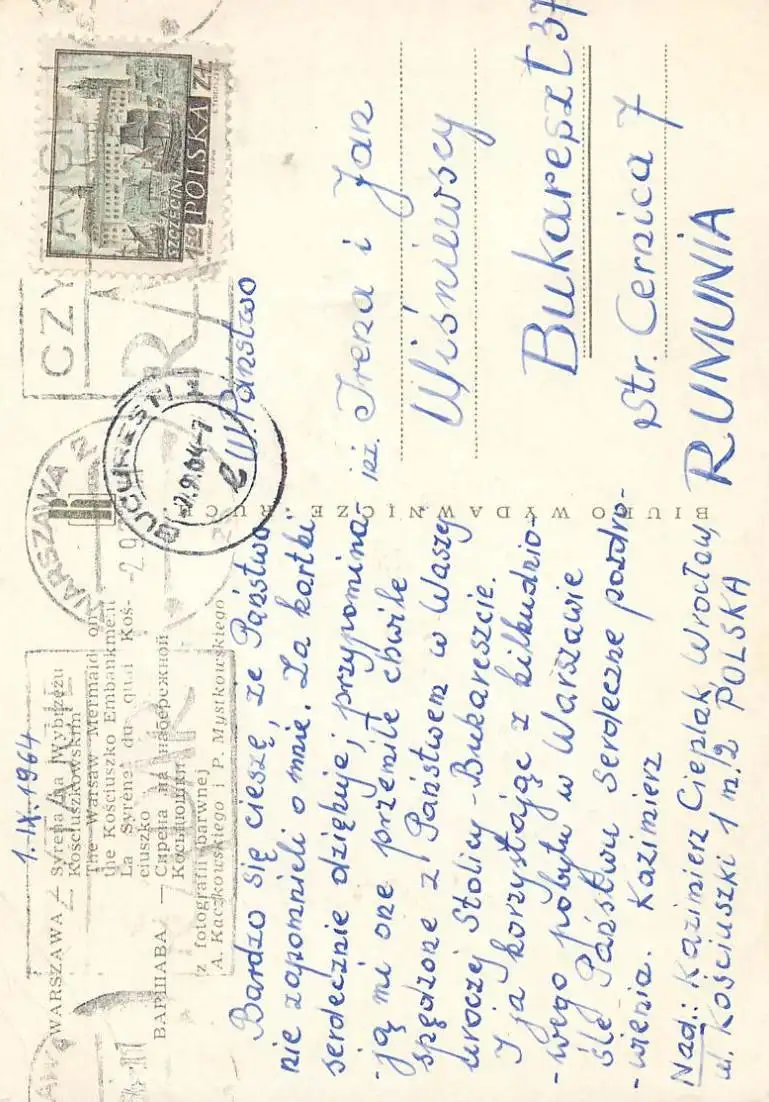 1.IX.1964
WARSZAWA — Syrena na Wybrzeżu
Kościuszkowskim
The Warsaw Mermaid on
the Kościuszko Embankment
La Syrene du quai Koś-
ciuszko
ВАРШАВА — Сирена на набережной
Костюшки
z fotografii barwnej
A. Kaczkowskiego i P. Mystkowskiego
Bardzo się cieszę, że Państwo
nie zapomnieli o mnie. Za kartki
serdecznie dziękuję; przypomina-
-ją mi one przemiłe chwile
spędzone z Państwem w Waszej
uroczej Stolicy - Bukareszcie.
I ja korzystając z kilkudnio-
-wego pobytu w Warszawie
ślę Państwu serdeczne pozdro-
-wienia. Kazimierz
Nad.: Kazimierz Cieplak, Wrocław,
ul. Kościuszki 1 m./2 POLSKA
BIURO WYDAWNICZE „RUCH”
WARSZAWA 2
-2.9.
BUCUREȘTI
.9.64-7
CZY
RA
SZCZECIN
1,50 POLSKA ZŁ
W. Państwo
inż. Irena i Jan
Wiśniewscy
Bukareszt 37
Str. Cernica 7
RUMUNIA